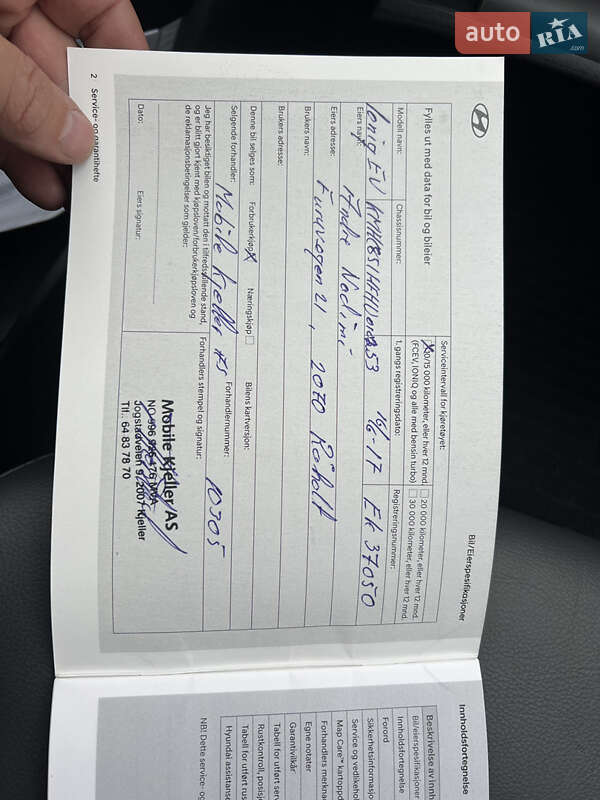 auto RIA .com
Bil/Eierspesifikasjoner
Fylles ut med data for bil og bileier
Serviceintervall for kjøretøyet:
X 10/15 000 kilometer, eller hver 12 mnd.
(FCEV, IONIQ og alle med bensin turbo)
20 000 kilometer, eller hver 12 mnd.
30 000 kilometer, eller hver 12 mnd.
Modell navn:
Chassisnummer:
1. gangs registreringsdato:
Registreringsnummer:
Ioniq EV
16/6-17
EK 37050
Eiers navn:
Andre
Eiers adresse:
Furuvegen 21, 2070 Råholt
Brukers navn:
Brukers adresse:
Denne bil selges som:
Forbrukerkjøp X
Næringskjøp
Bilens kartversjon:
Selgende forhandler:
Forhandlernummer:
Mobile Kjeller AS
10305
Jeg har besiktiget bilen og mottatt den i tilfredsstillende stand,
og er blitt gjort kjent med kjøpsloven/forbrukerkjøpsloven og
de reklamasjonsbetingelser som gjelder:
Forhandlers stempel og signatur:
Mobile Kjeller AS
Kjeller
Tlf.: 64 83 78 70
Dato:
Eiers signatur:
2 Service- og garantihefte
Innholdsfortegnelse
Beskrivelse av innh
Bil/eierspesifikasjoner
Innholdsfortegnelse
Forord
Sikkerhetsinformasjo
Service og vedlikehol
Map Care™ kartoppd
Forhandlers merknad
Egne notater
Garantivilkår
Tabell for utført serv
Rustkontroll, posisj
Tabell for utført rus
Hyundai assistanse
NB! Dette service- og